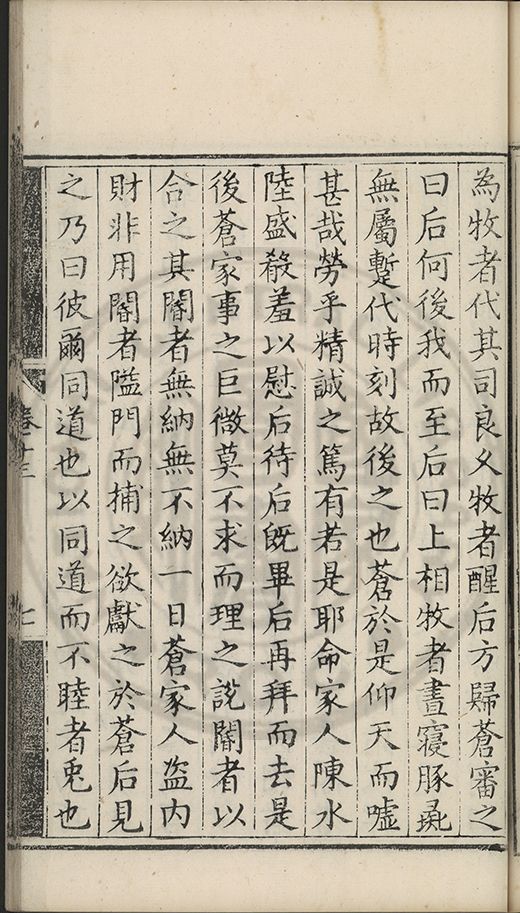 為牧者代其司良久牧者醒后方歸蒼審之
曰后何後我而至后曰上相牧者晝寢豚彘
無屬蹔代時刻故後之也蒼於是仰天而嘘
甚哉勞乎精誠之篤有若是耶命家人陳水
陸盛殽羞以慰后待后旣畢后再拜而去是
後蒼家事之巨微莫不求而理之説閽者以
合之其閽者無納無不納一日蒼家人盜内
財非用閽者隘門而捕之欲獻之於蒼后見
之乃曰彼爾同道也以同道而不睦者兎也
卷十三
七